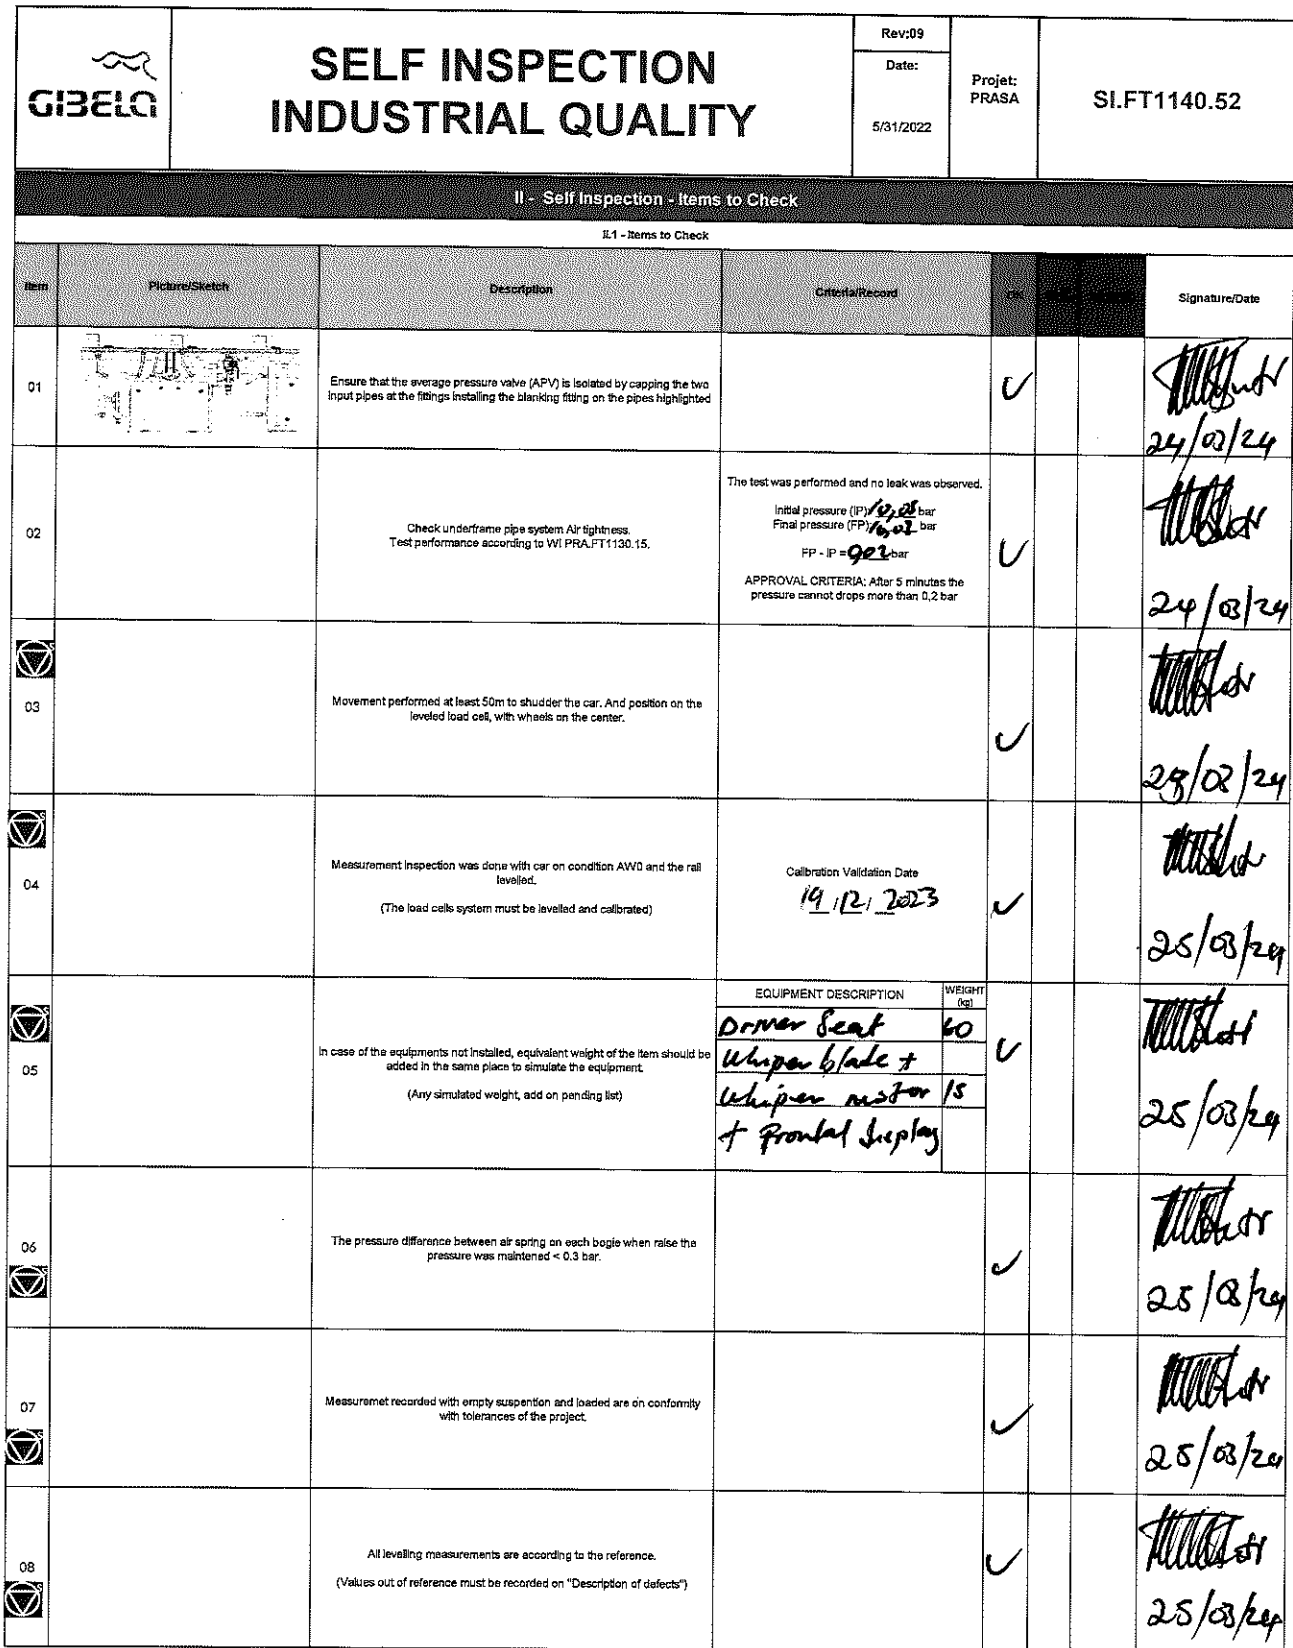 GIBELA
SELF INSPECTION
INDUSTRIAL QUALITY
Rev:09
Date:
5/31/2022
Projet:
PRASA
SI.FT1140.52
II - Self Inspection - Items to Check
II.1 - Items to Check
Item
Picture/Sketch
Description
Criteria/Record
OK
Signature/Date
01
Ensure that the average pressure valve (APV) is isolated by capping the two
input pipes at the fittings installing the blanking fitting on the pipes highlighted
24/03/24
02
Check underframe pipe system Air tightness.
Test performance according to WI PRA.FT1130.15.
The test was performed and no leak was observed.
Initial pressure (IP) 10,05 bar
Final pressure (FP) 10,03 bar
FP - IP = 0,02 bar
APPROVAL CRITERIA: After 5 minutes the
pressure cannot drops more than 0,2 bar
24/03/24
03
Movement performed at least 50m to shudder the car. And position on the
leveled load cell, with wheels on the center.
/03/24
04
Measurement inspection was done with car on condition AW0 and the rail
levelled.
(The load cells system must be levelled and calibrated)
Calibration Validation Date
19 / 12 / 2023
25/03/24
05
In case of the equipments not installed, equivalent weight of the item should be
added in the same place to simulate the equipment.
(Any simulated weight, add on pending list)
EQUIPMENT DESCRIPTION WEIGHT (kg)
Driver Seat 60
Whiper blade +
Whiper motor 15
+ Frontal Display
25/03/24
06
The pressure difference between air spring on each bogie when raise the
pressure was maintened < 0.3 bar.
25/03/24
07
Measuremet recorded with empty suspention and loaded are on conformity
with tolerances of the project.
25/03/24
08
All levelling measurements are according to the reference.
(Values out of reference must be recorded on "Description of defects")
25/03/24